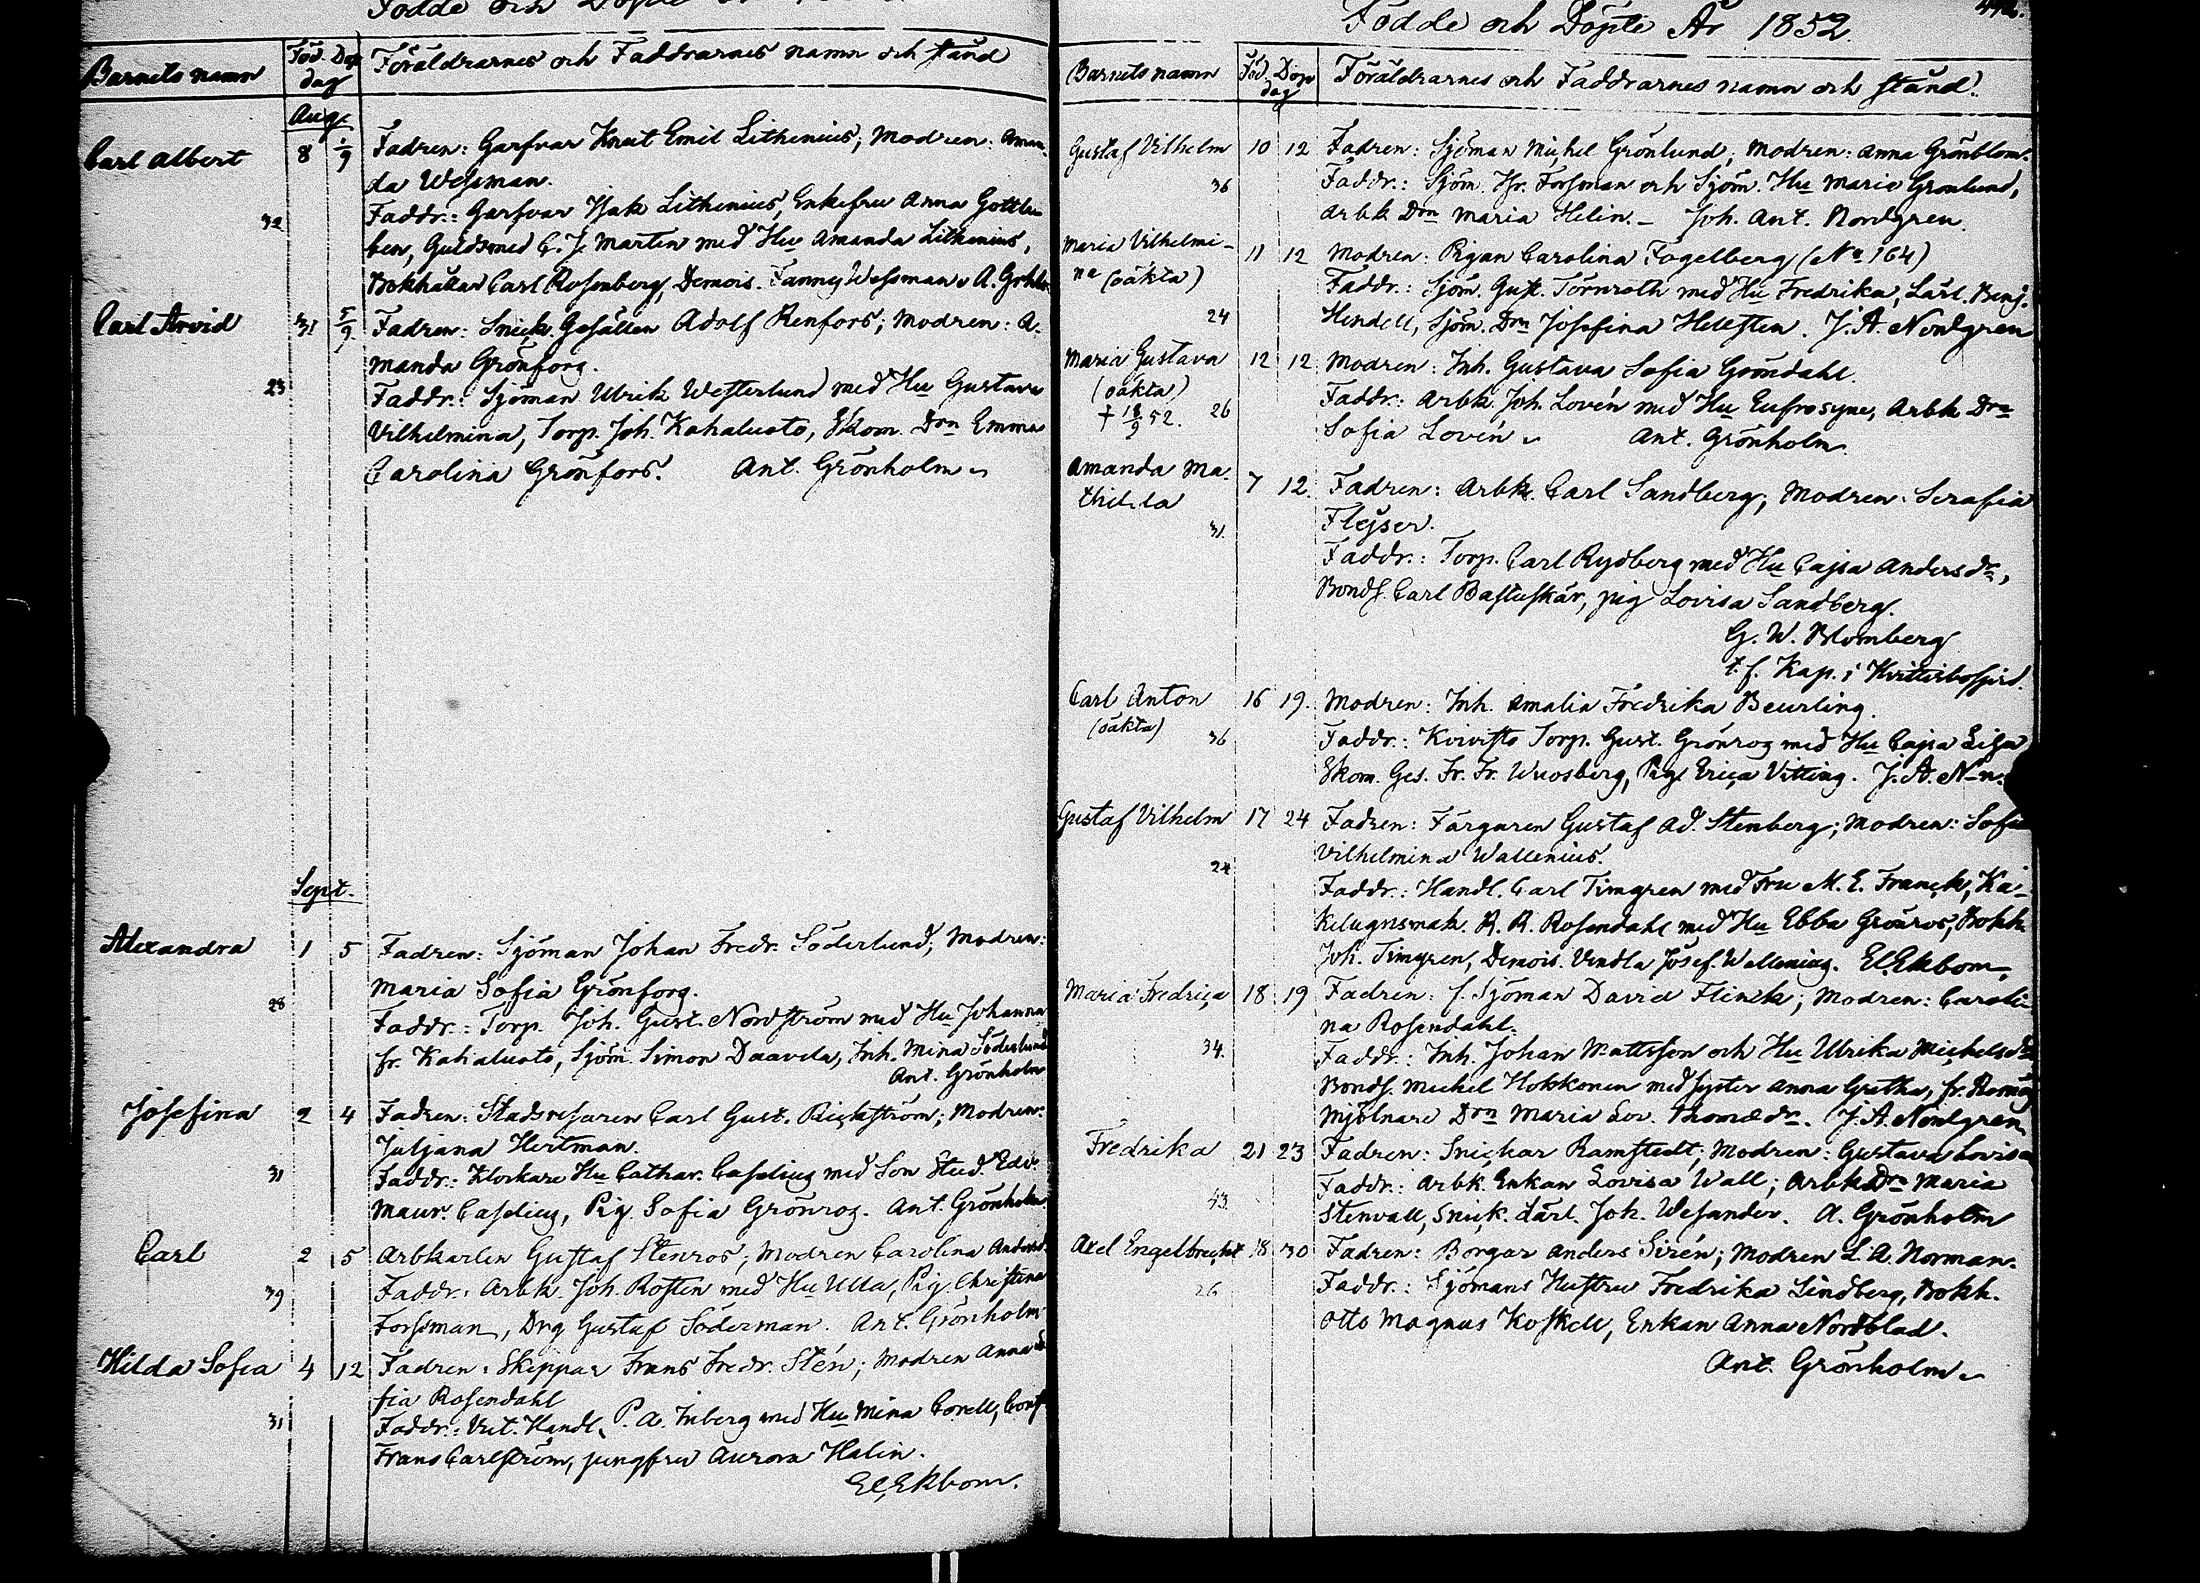 Födde och Döpte
Barnets namn
Föd. Döp
dag
Föräldrarnes och Faddrarnes namn och stånd
Aug.
Carl Albert 8 1/9 Fadren: Garfvar Knut Emil Lithenius; Modren: Aman-
da Wessman.
32 Faddr.: Garfvar Isak Lithenius, Enkefru Anna Gottle-
ben, Guldsmed C. J. Martin med Hu Amanda Lithenius,
Bokhållar Carl Rosenberg, Demois. Fanny Wessman.
Carl Arvid 31 5/9 Fadren: Snick. Gesällen Adolf Renfors; Modren: A-
manda Grönfors.
23 Faddr.: Sjöman Ulrik Westerlund med Hu Gustava
Vilhelmina, Torp. Joh. Kahaluoto, Skom. Drn Emma
Carolina Grönfors. Ant. Grönholm
Sept.
Alexandra 1 5 Fadren: Sjöman Johan Fredr. Söderlund; Modren:
Maria Sofia Grönfors.
28 Faddr.: Torp. Joh. Gust. Nordström med Hu Johanna
fr. Kahaluoto, Sjöm. Simon Daavela, Inh. Mina Söderlund
Ant. Grönholm
Josefina 2 4 Fadren: Carl Gust. Modren:
Juljana Hertman.
31 Faddr.: Klockare Hu Cathar. Caselius med Son Stud. Edv.
Maur. Caselius, Pig. Sofia Grönros. Ant. Grönholm
Carl 2 5 Arbkarlen Gustaf Stenros; Modren Carolina Anders
39 Faddr.: Arbk. Joh. Rosten med Hu Ulla, Pig. Christina
Forssman, Drg Gustaf Söderman. Ant. Grönholm
Hilda Sofia 4 12 Fadren: Skeppar Frans Fredr. Stén; Modren Anna So
fia Rosendahl
31 Faddr.: Vict. Handl. P. A. Inberg med Hu Mina Corell,
Frans Carlström, jungfru Aurora Halin.
El. Ekbom.
Födde och Döpte År 1852
Barnets namn
Föd. Döp
dag
Föräldrarnes och Faddrarnes namn och stånd.
Gustaf Vilhelm 10 12 Fadren: Sjöman Michel Grönlund; Modren: Anna Grönblom.
36 Faddr.: Sjöm. Hr. Forsman och Sjöm. Hu Maria Grönlund,
Arbk Drn Maria Helin. – Joh. Ant. Nordgren.
Maria Vilhelmi- 11 12 Modren: Pigan Carolina Fogelberg (No 164)
na (oäkta) Faddr.: Sjöm. Gust. Törnroth med Hu Fredrika, Lärl. Benj.
24 Hendell, Sjöm. Drn Josefina Hellsten. J. A. Nordgren
Maria Gustava 12 12 Modren: Inh. Gustava Sofia Gröndahl.
(oäkta) Faddr.: Arbk. Joh. Lovén med Hu Eufrosyne, Arbk Drn
† 18/9 52. 26 Sofia Lovén. Ant. Grönholm.
Amanda Ma- 7 12. Fadren: Arbk. Carl Sandberg; Modren: Serafia
thilda Flejser.
31. Faddr.: Torp. Carl Rydberg med Hu Cajsa Andersdr,
Bonds. Carl Bastuskär, pig Lovisa Sandberg.
G. W. Blomberg
t. f. Kap. i
Carl Anton 16 19. Modren: Inh. Amalia Fredrika Beurling.
(oäkta) 36 Faddr.: Koivisto Torp. Gust. Grönros med Hu Cajsa Lisa
Skom. Ges. Fr. Fr. Wuosberg, Pig. Erica Vitting. J. A. N–n.
Gustaf Vilhelm 17 24 Fadren: Färgaren Gustaf Ad. Stenberg; Modren: Sofia
Vilhelmina Wallenius.
24 Faddr.: Handl. Carl Timgren med Fru M. E. Franck, Ka-
kelugnsmak. A. R. Rosendahl med Hu Ebba Grönros, Bokh.
Joh. Timgren, Demois. Vendla Josef. Wallenius. El. Ekbom.
Maria Fredrica 18 19 Fadren: f. Sjöman David Flinck; Modren: Caroli-
na Rosendahl.
34. Faddr.: Inh. Johan Mattsson och Hu Ulrika Michelsdr
Bonds. Michel Hokkonen med syster Anna Gretha,
Mjölnare Drn Maria Lov. Thomædr. J. A. Nordgren
Fredrika 21 23 Fadren: Snickar Ramstedt; Modren: Gustava Lovisa
Faddr.: Arbk. Enkan Lovisa Wall; Arbk Drn Maria
43. Stenvall, Snick. Lärl. Joh. Wesander. A. Grönholm
Axel Engelbrecht 18 30 Fadren: Borgar Anders Sirén; Modren L. A. Norman.
26 Faddr.: Sjömans Hustru Fredrika Lindberg, Bokh.
Otto Magnus Koskell, Enkan Anna Nordblad.
Ant. Grönholm